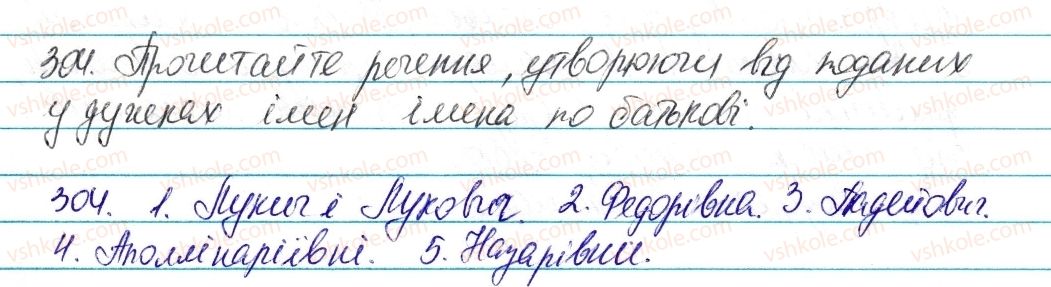 304. Прочитайте речення, утворюючи від поданих
у дужках імен імена по батькові.
304. 1. Лукич і Лукович. 2. Федорівна. 3. Тадейович.
4. Аполлінаріївні. 5. Назарівні.